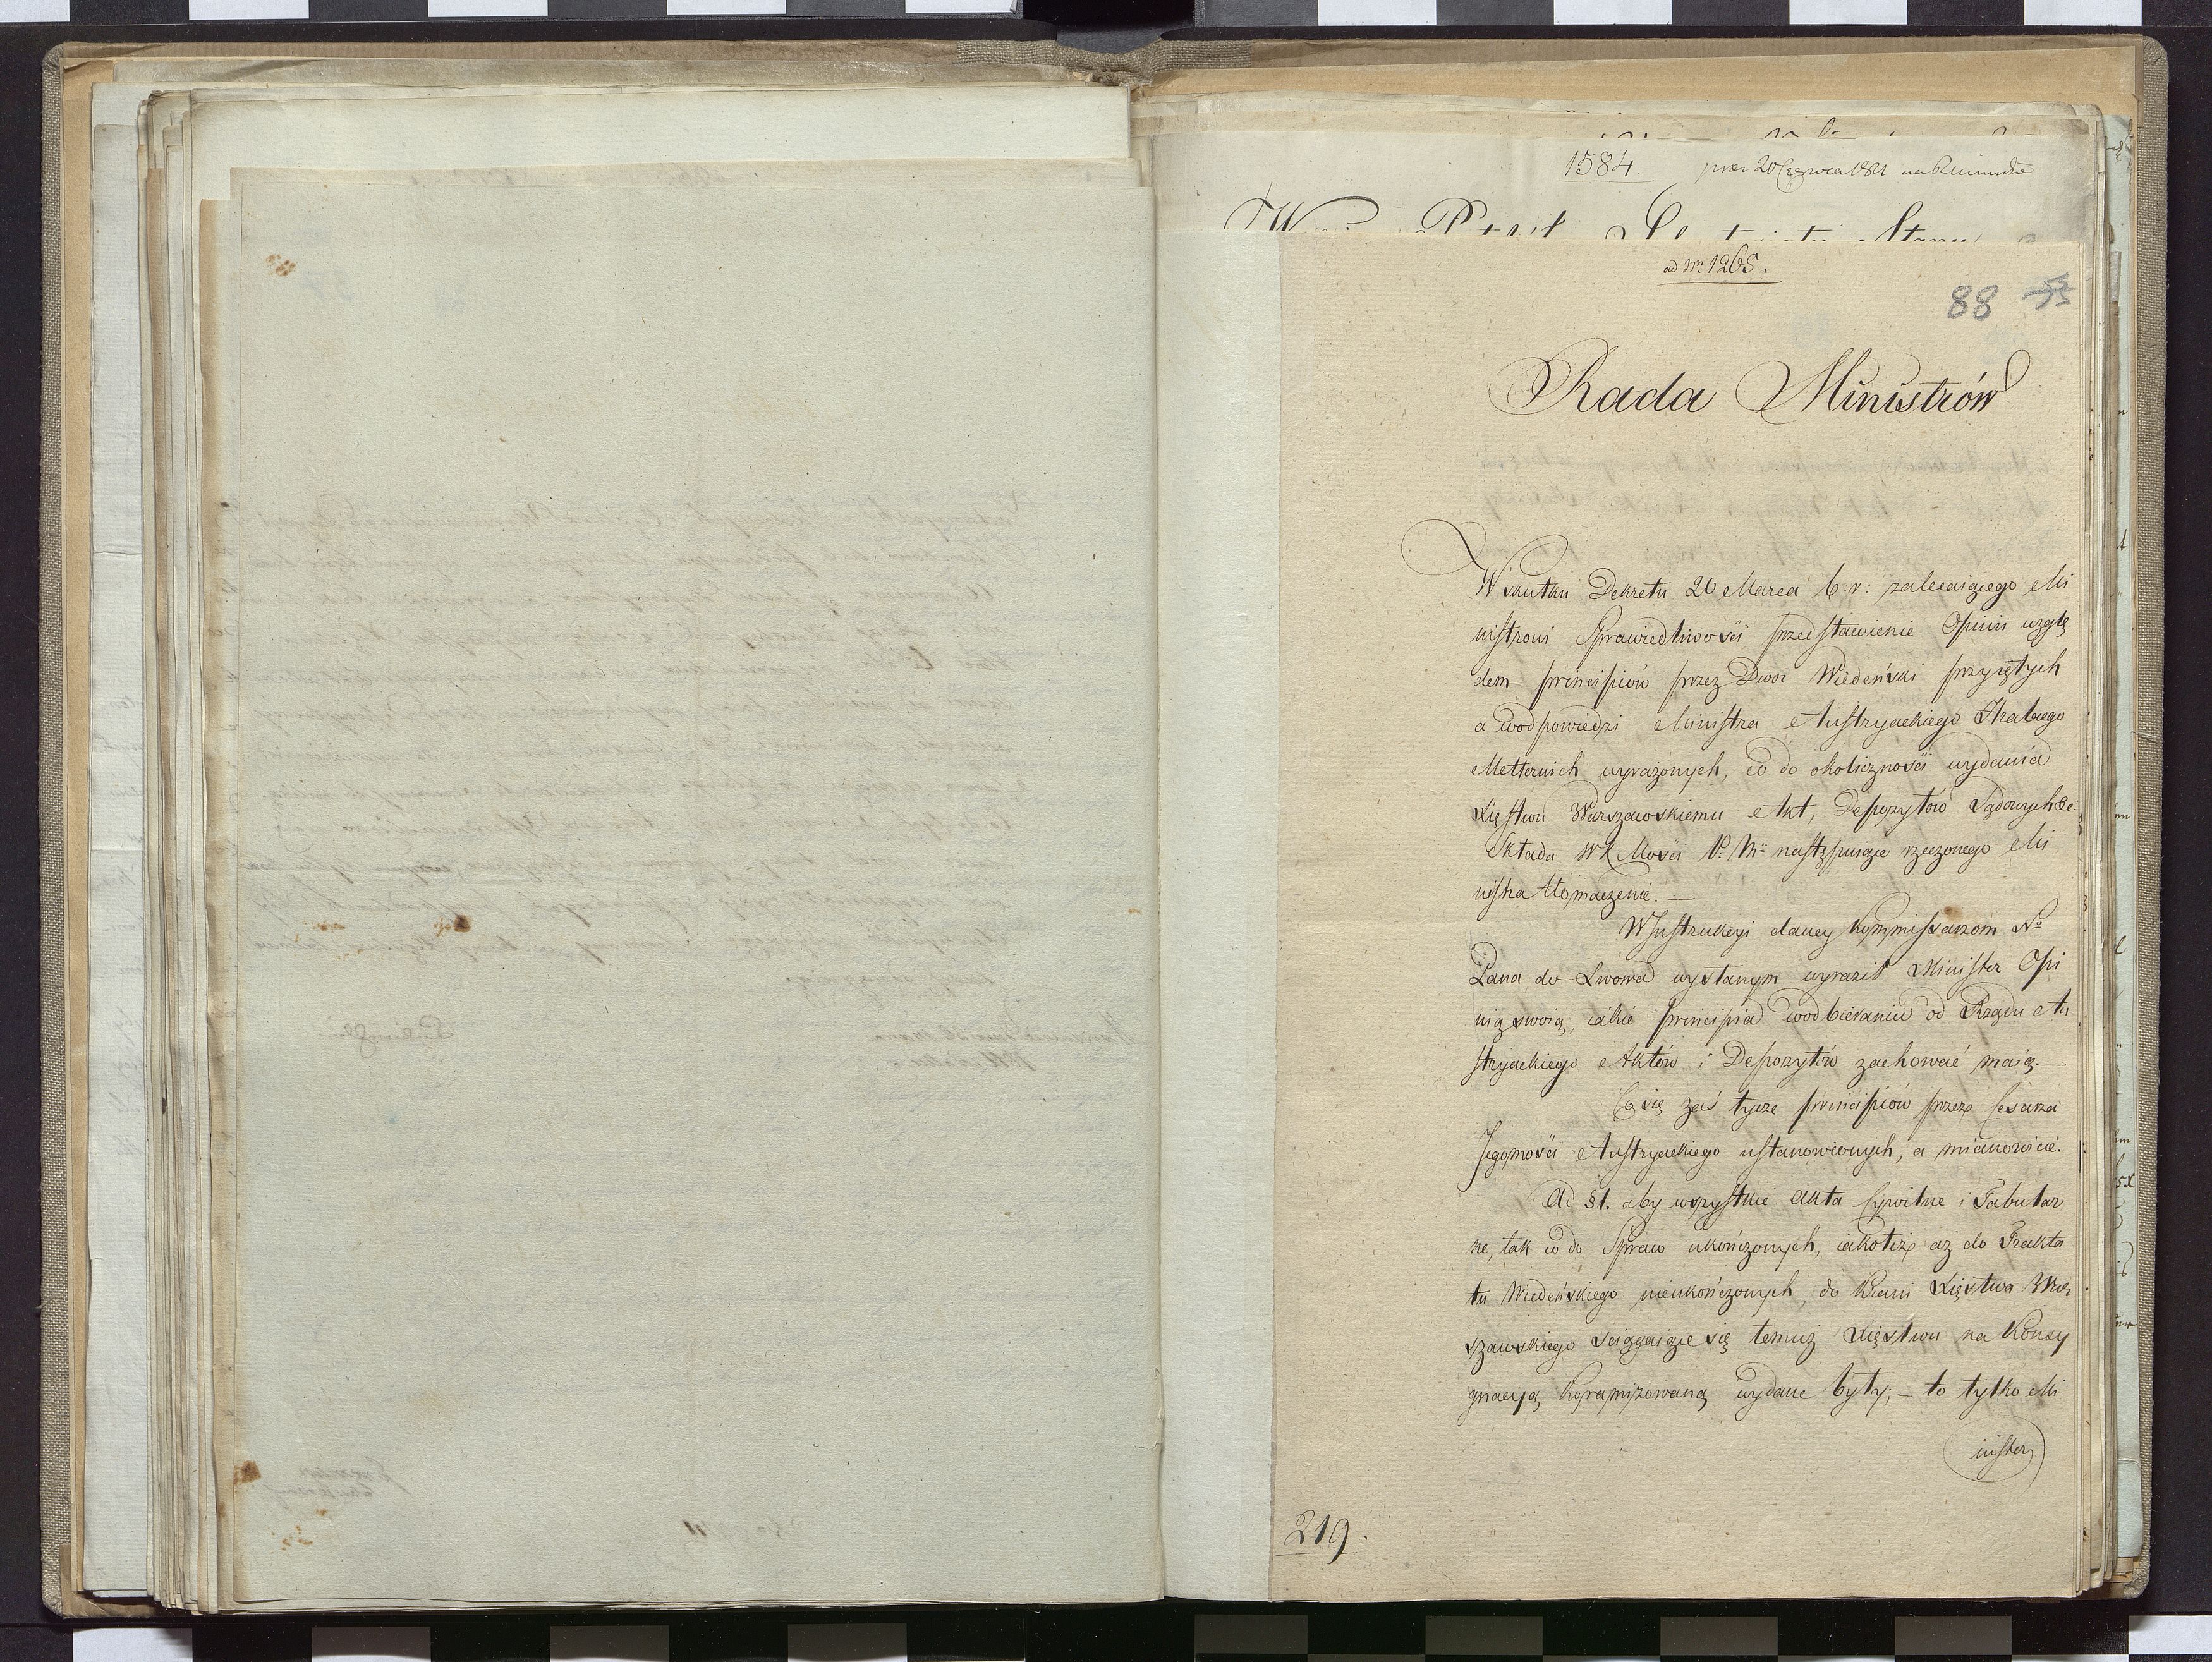 1584.
ad Nr. 1265.
88
Rada Ministrów
W skutku Dekretu 20 Marca b: r: zalecaiącego Mi
nistrowi Sprawiedliwości przedstawienie Opinii wzglę
dem principiów przez Dwór Wiedeński przyiętych
a w odpowiedzi Ministra Austryackiego Hrabiego
Metternich wyrażonych, co do okoliczności wydania
Xięstwu Warszawskiemu Akt, Depozytów Sądowych &c.
Składa W K Mości następuiące rzeczonego Mi
nistra tłomaczenie. —
W Instrukcyi daney Kommissarzom N°
Pana do Lwowa wysłanym wyraził Minister Opi
nią swoią, iakie principia w odbieraniu od Rządu Au
stryackiego Aktów i Depozytów zachować maią. —
Co się zaś tycze principiów przez Cesarza
Jegomości Austryackiego ustanowionych, a mianowicie.
Ad §1. aby wszystkie Akta Cywilne i Tabular
ne, tak co do Spraw ukończonych, iakotiż aż do Trakta
tu Wiedeńskiego nieukończonych, do Kraiu Xięstwa War
szawskiego sciągaiące się temuż Xięstwu na Konsy
gnacyą koramizowaną wydane były; — to tylko Mi
nister
219.